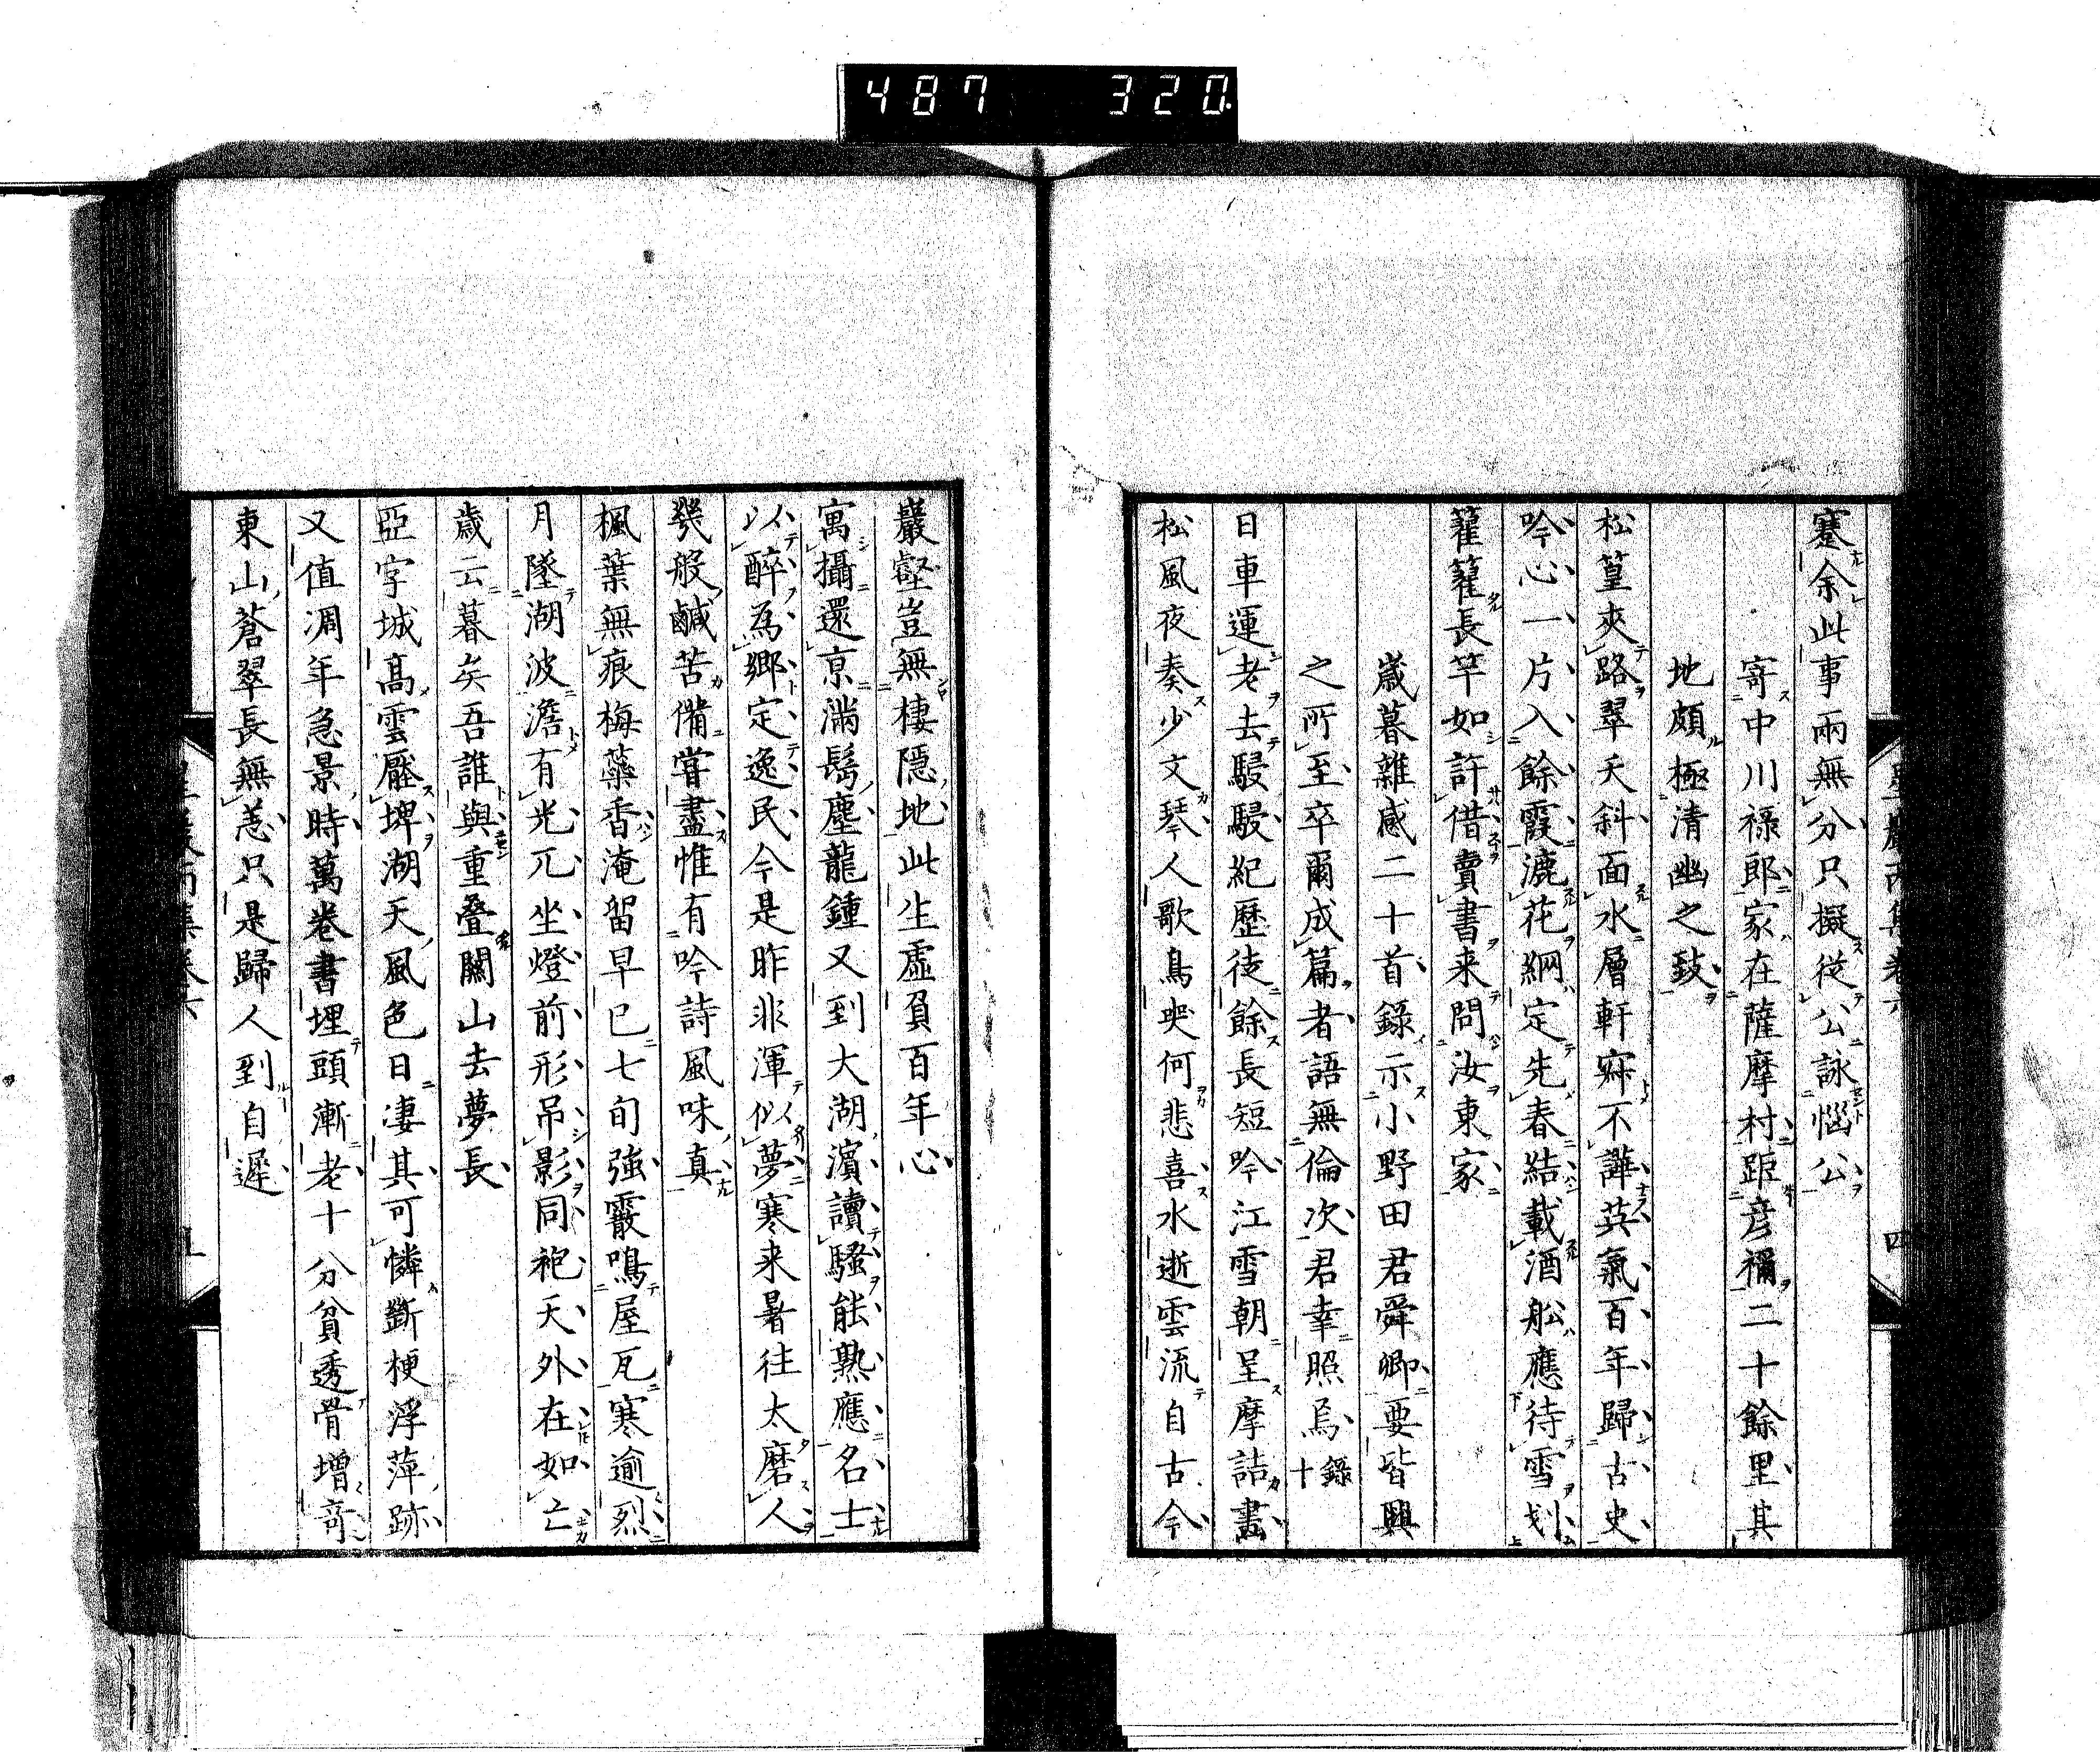 487 320
蹇余此事兩無分只擬從公詠惱公
寄中川祿郎家在薩摩村距彦禰二十餘里其
地頗極清幽之致
松篁夾路翠夭斜面水層軒寂不譁英氣百年歸古史
吟心一片入餘霞漉花網定先春結載酒舩應待雪划
籊籊長竿如許借賣書来問汝東家
歳暮雜感二十首錄示小野田君舜卿要皆興
之所至卒爾成篇者語無倫次君幸照焉 錄十
日車運老去駸駸紀歷徒餘長短吟江雪朝呈摩詰畫
松風夜奏少文琴人歌鳥哭何悲喜水逝雲流自古今
巖壑豈無棲隱地此生虛負百年心
寓攝還京滿鬂塵龍鍾又到大湖濵讀騷能熟應名士
以醉為鄉定逸民今是昨非渾似夢寒来暑往太磨人
幾般鹹苦備嘗盡惟有吟詩風味真
楓葉無痕梅蘂香淹留早已七旬強霰鳴屋瓦寒逾烈
月墜湖波澹有光兀坐燈前形吊影同袍天外在如亡
歳云暮矣吾誰與重疊關山去夢長
亞字城高雲壓埤湖天風色日凄其可憐斷梗浮萍跡
又值凋年急景時萬卷書埋頭漸老十分貧透骨增奇
東山蒼翠長無恙只是歸人到自遲